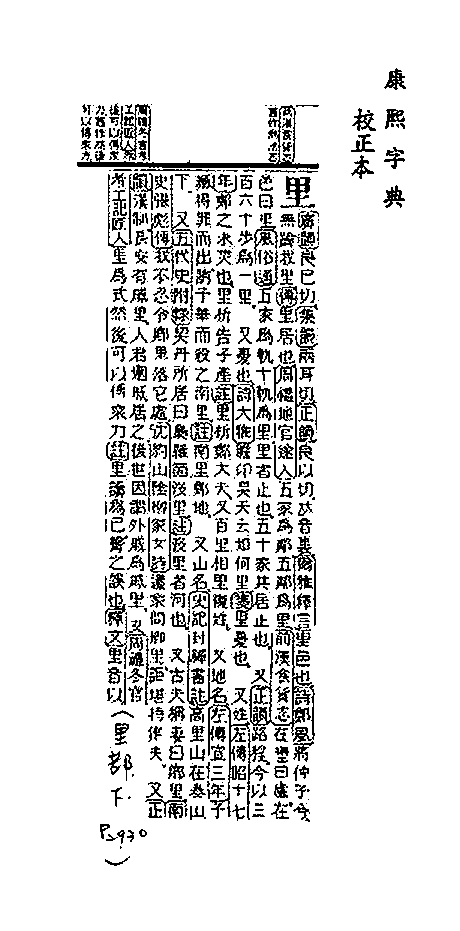 康熙字典
校正本
里
廣韻良已切集韻兩耳切正韻良以切𠀤音裏爾雅釋言里邑也詩鄭風將仲子兮
無踰我里傳里居也周禮地官遂人五家為鄰五鄰為里前漢食貨志在壄曰廬在
邑曰里風俗通五家為軌十軌為里里者止也五十家共居止也 又正韻路程今以三
百六十步為一里 又憂也詩大雅瞻卬昊天云如何里箋里憂也 又姓左傳昭十七
年鄭之未災也里析告子產註里析鄭大夫又百里相里複姓 又地名左傳宣三年子
臧得罪而出誘子華而殺之南里註南里鄭地 又山名史記封禪書註高里山在泰山
下 又五代史附錄契丹所居曰梟羅箇沒里註沒里者河也 又古夫稱妻曰鄉里南
史張彪傳我不忍令鄉里落它處沈約山陰柳家女詩還家問鄉里詎堪持作夫 又正
韻漢制長安有戚里人君姻戚居之後世因謂外戚為戚里 又周禮冬官
考工記匠人里為式然後可以傳眾力註里讀為已聲之誤也釋文里音以
(里部.下.
P.930
)